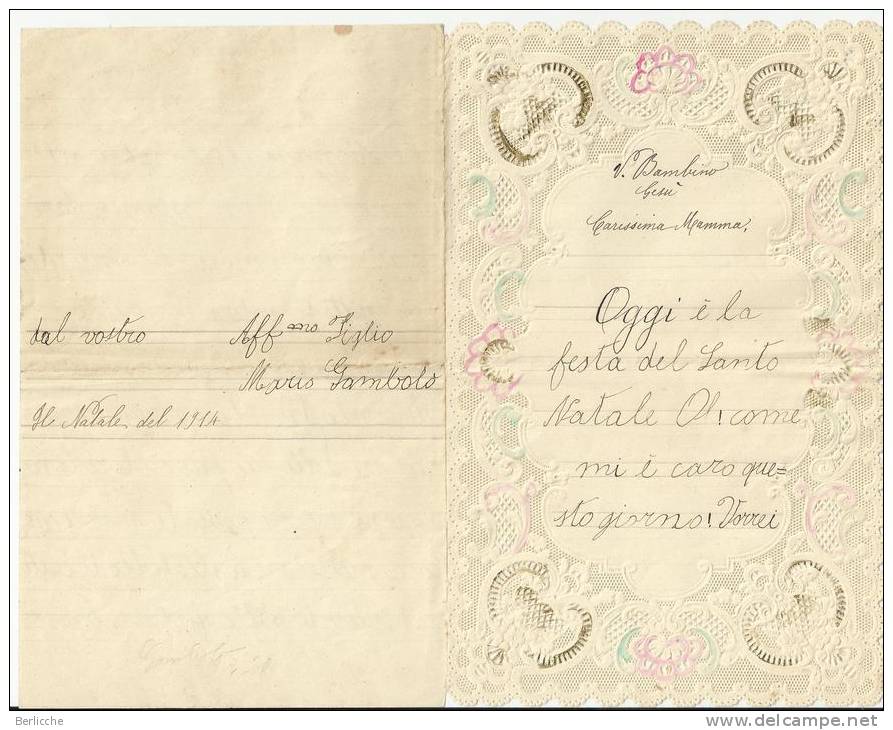 V. Bambino
Gesù
Carissima Mamma,
Oggi è la
festa del Santo
Natale Oh! come
mi è caro que=
sto giorno! Vorrei
dal vostro Aff mo Figlio
Mario Gambolò
Il Natale del 1914
Berlicche
www.delcampe.net